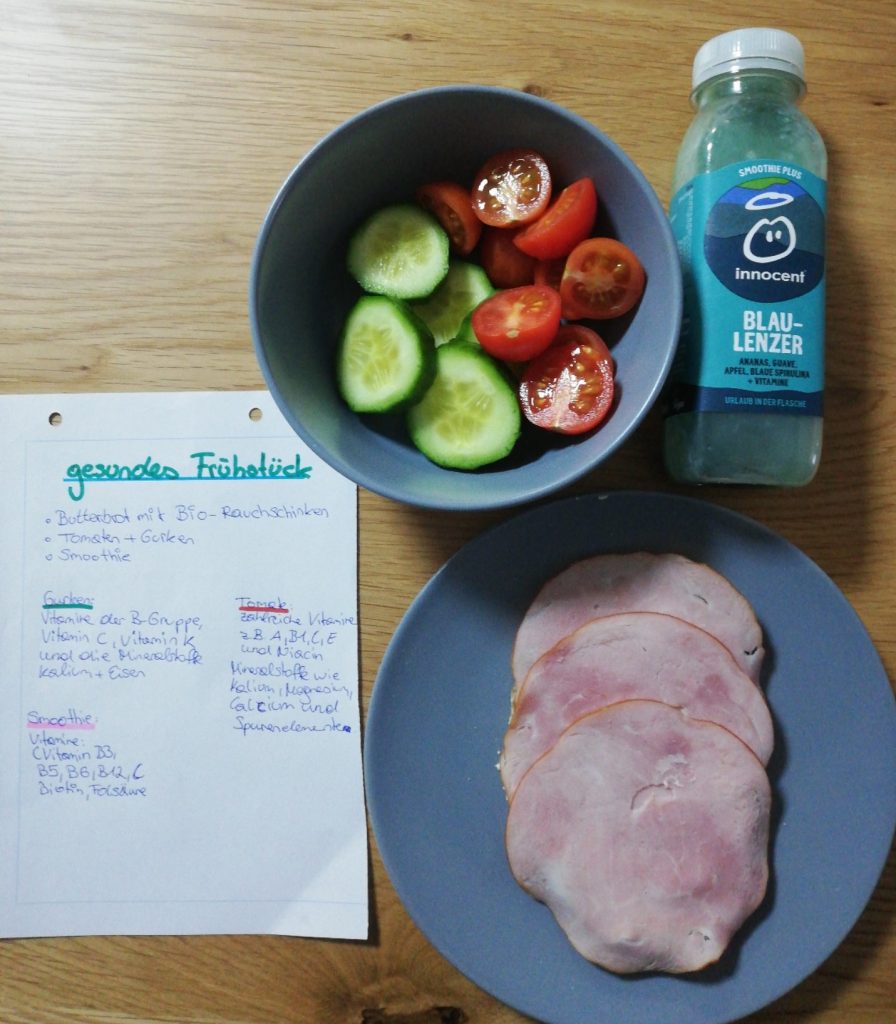 SMOOTHIE PLUS
innocent
BLAU-
LENZER
ANANAS, GUAVE,
APFEL, BLAUE SPIRULINA
+ VITAMINE
URLAUB IN DER FLASCHE
gesundes Frühstück
Butterbrot mit Bio-Rauchschinken
Tomaten + Gurken
Smoothie
Gurken:
Vitamine der B-Gruppe,
Vitamin C, Vitamin K
und die Mineralstoffe
Kalium + Eisen
Smoothie:
Vitamine:
(Vitamin B3,
B5, B6, B12, C
Biotin, Folsäure
Tomate:
zahlreiche Vitamine
z.B. A, B1, C, E
und Niacin
Mineralstoffe wie
Kalium, Magnesium,
Calcium und
Spurenelemente